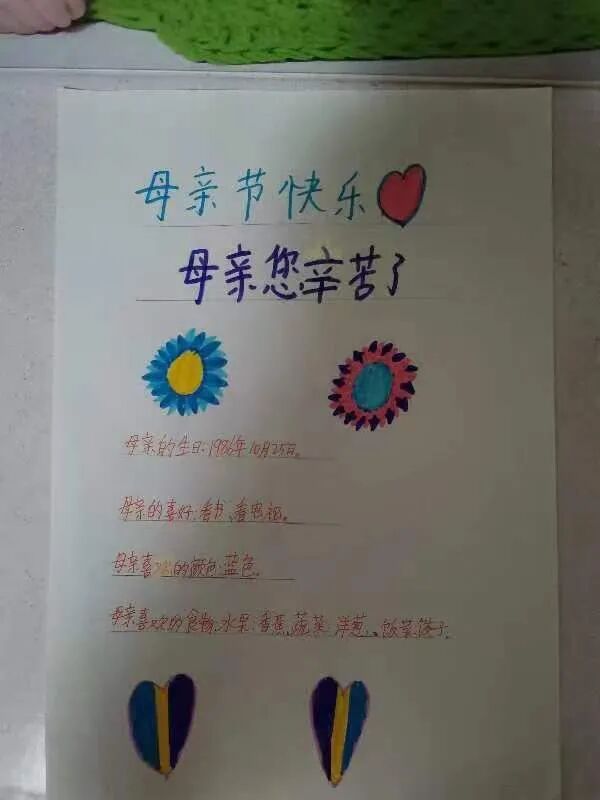 母亲节快乐
母亲您辛苦了
母亲的生日:1986年10月25日。
母亲的喜好:看书、看电视。
母亲喜欢的颜色:蓝色。
母亲喜欢的食物:水果:香蕉、蔬菜:洋葱、饭菜:饺子.